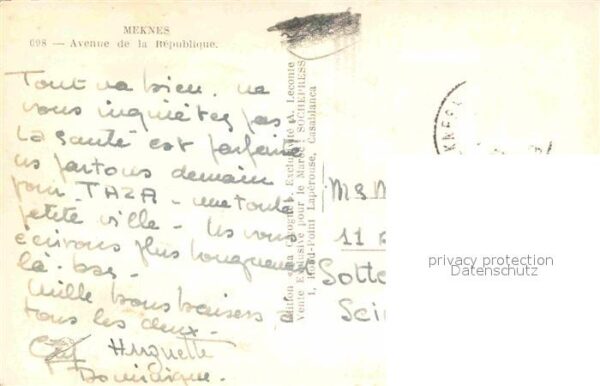 MEKNES
698 — Avenue de la République.
Tout va bien. ne
vous inquiétez pas
La santé est parfaite
ns partons demain
pour TAZA - une toute
petite ville - Ns vous
écrirons plus longuement
là-bas -
Mille bons baisers à
tous les deux -
Huguette
Dominique.
Edition "La Cigogne". Exclusivité A. Leconte
Vente Exclusive pour le Maroc: SOCHEPRESS
1, Rond-Point Lapérouse, Casablanca
11
Sotte
privacy protection
Datenschutz